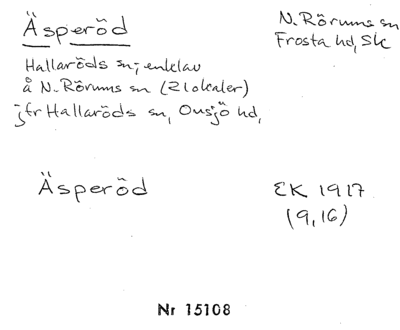 Äsperöd
N. Rörums sn
Frosta hd, Sk
Hallaröds sn; enklav
å N. Rörums sn (2 lokaler)
jfr Hallaröds sn, Onsjö hd,
Äsperöd
EK 1917
(9,16)
Nr 15108